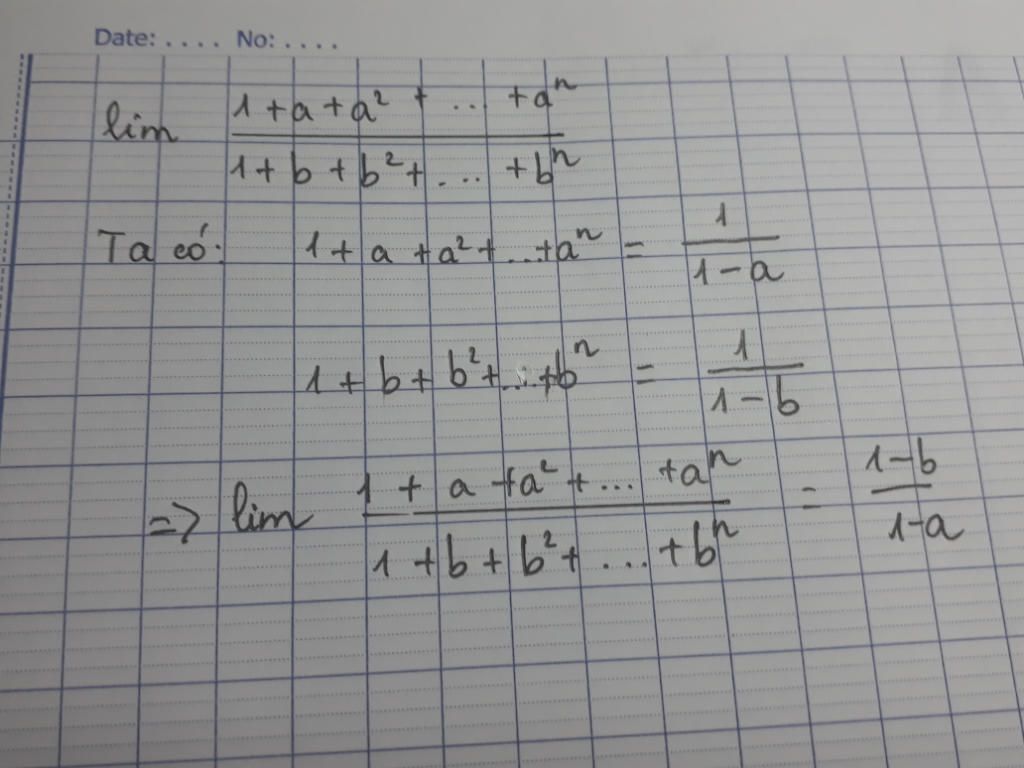 Date: .... No: ....
lim (1 + a + a² + ... + aⁿ)/(1 + b + b² + ... + bⁿ)
Ta có: 1 + a + a² + ... + aⁿ = 1/(1 - a)
1 + b + b² + ... + bⁿ = 1/(1 - b)
=> lim (1 + a + a² + ... + aⁿ)/(1 + b + b² + ... + bⁿ) = (1 - b)/(1 - a)